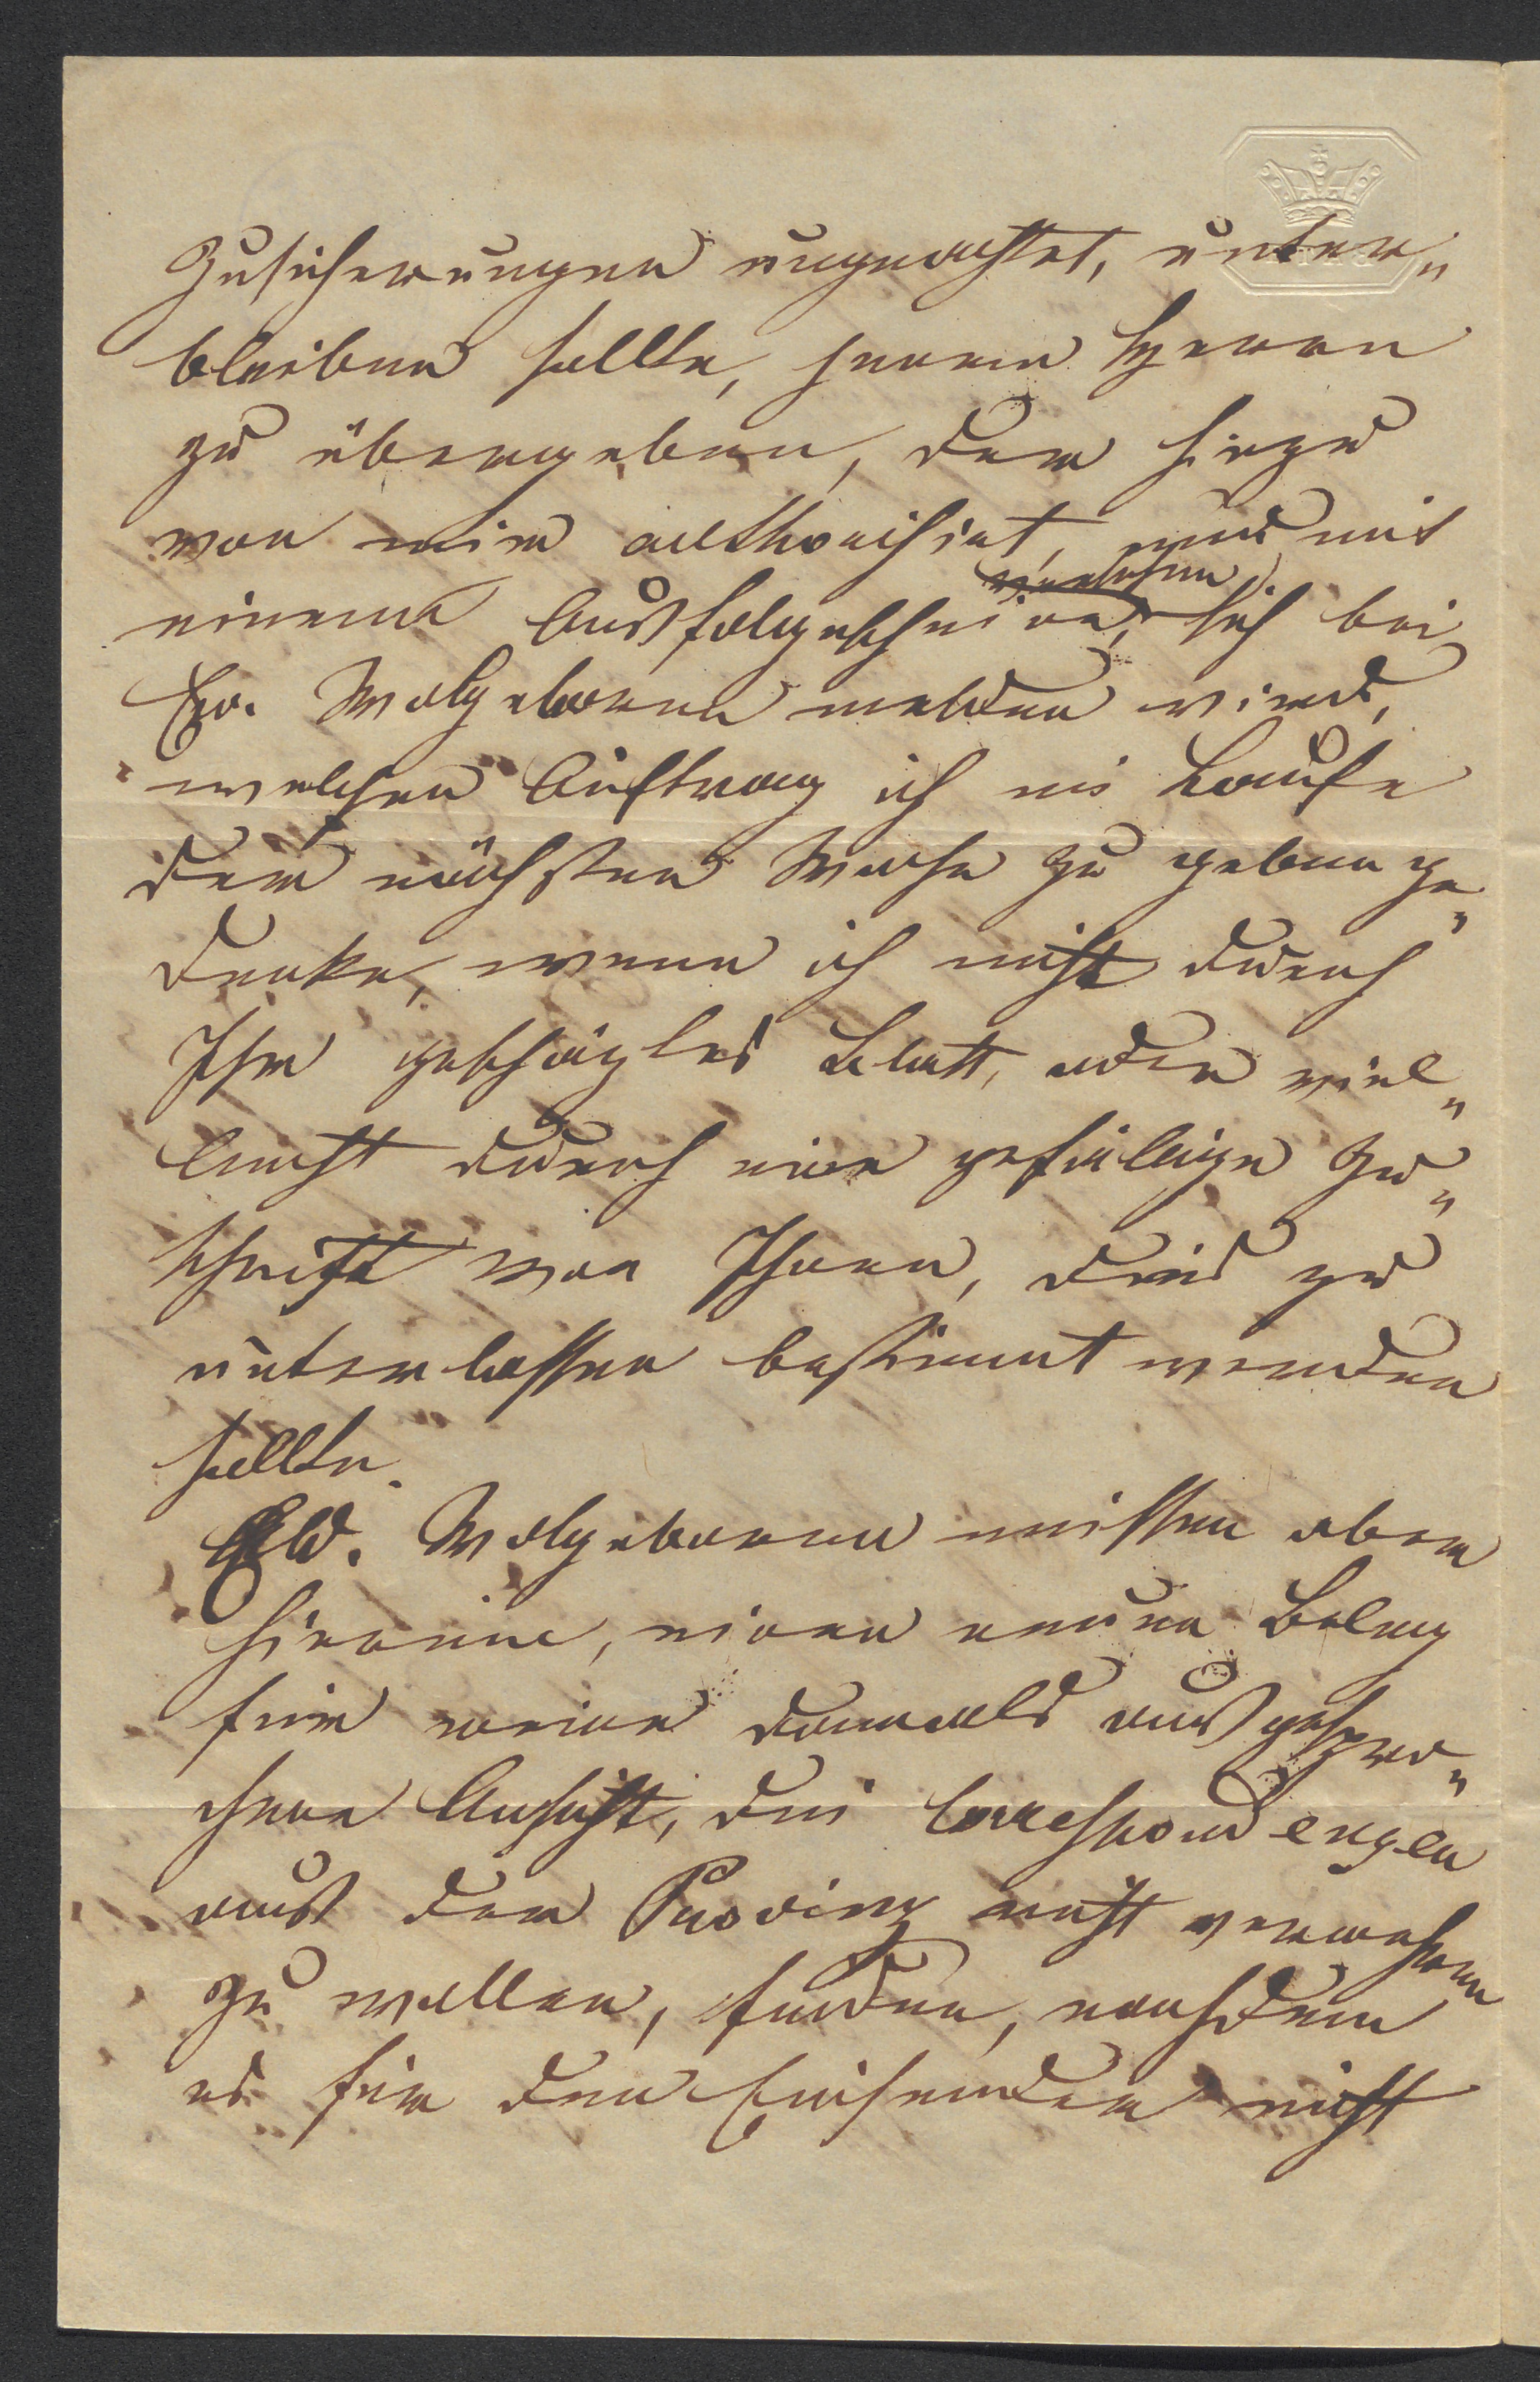 Zusicherungen ungeachtet, unter„
bleiben sollte, jenem Herrn
zu übergeben, der hiezu
von mir authorisirt, und mit
einem Ausfolgeschein versehen, sich bei
Ew. Wolgeboren melden wird,
welchen Auftrag ich im Laufe
der nächsten Woche zu geben ge„
denke, wenn ich nicht durch
Ihr geschäztes Blatt, oder viel„
leicht durch eine gefällige Zu„
schrift von Ihnen, dies zu
unterlassen bestimmt werden
sollte.
Wolgeboren müssen aber
hierin, einen neuen Beleg
für meine damals ausgespro„
chene Ansicht, die Correspondenzen
aus der Provinz nicht vermehren
zu wollen, finden, nachdem
es für den Einsender nicht